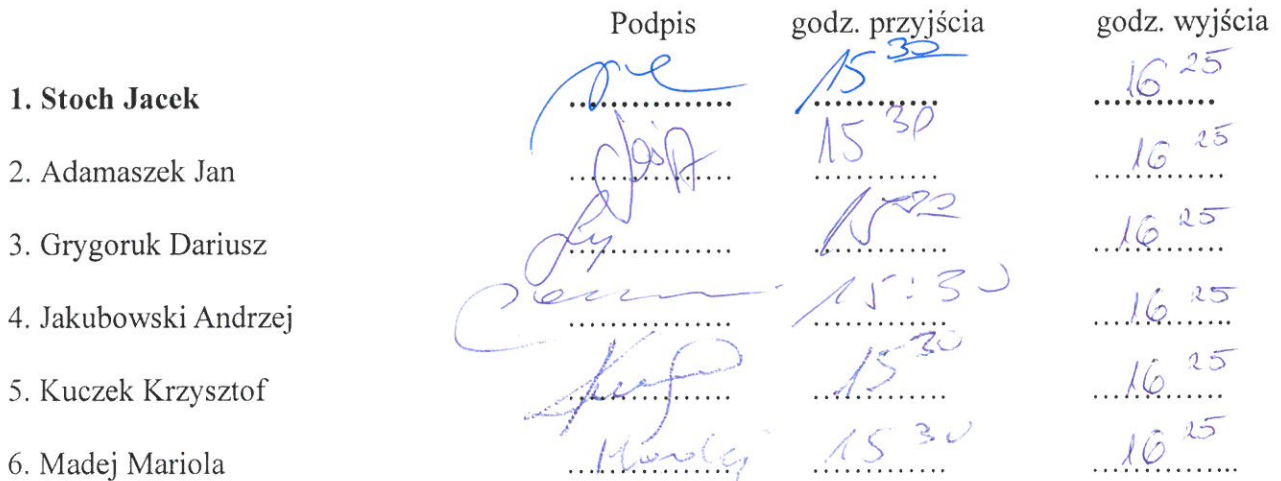 Podpis godz. przyjścia godz. wyjścia
1. Stoch Jacek .................. 15 30 16 25
2. Adamaszek Jan .................. 15 30 16 25
3. Grygoruk Dariusz .................. 15 30 16 25
4. Jakubowski Andrzej .................. 15:30 16 25
5. Kuczek Krzysztof .................. 15 30 16 25
6. Madej Mariola .................. 15 30 16 25